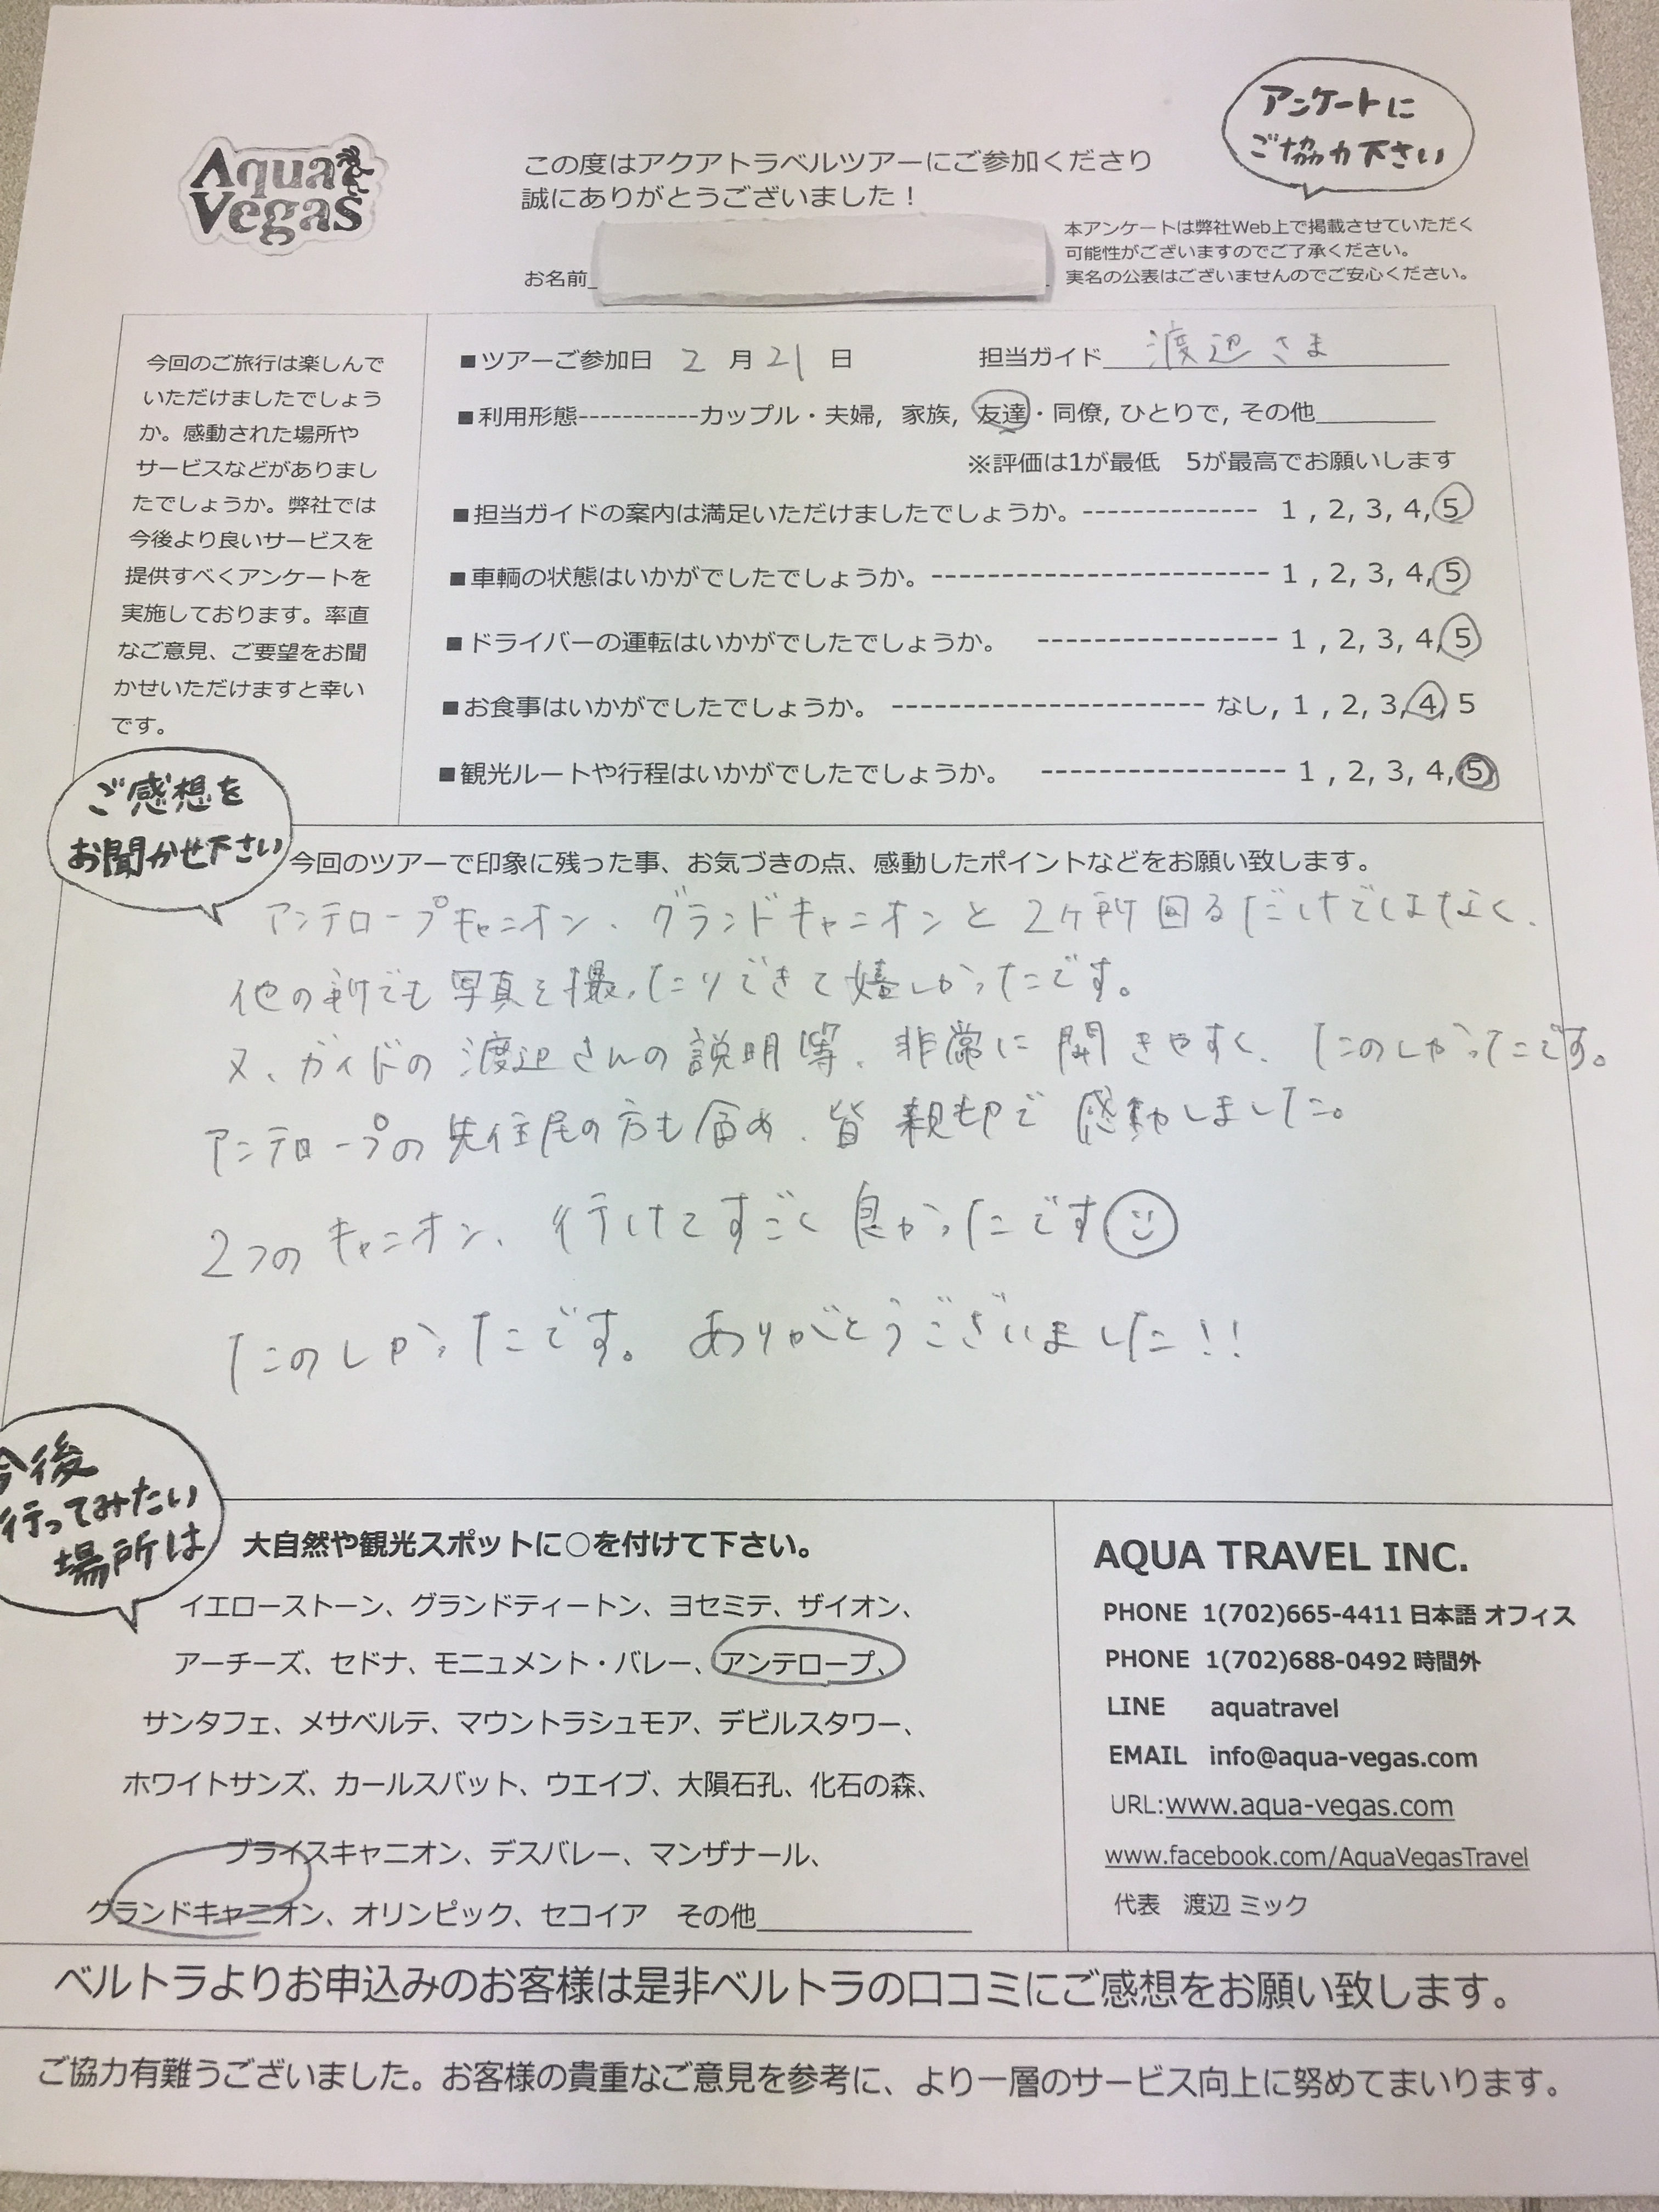 Aqua
Vegas
この度はアクアトラベルツアーにご参加くださり
誠にありがとうございました！
アンケートに
ご協力下さい
お名前
本アンケートは弊社Web上で掲載させていただく
可能性がございますのでご了承ください。
実名の公表はございませんのでご安心ください。
今回のご旅行は楽しんで
いただけましたでしょう
か。感動された場所や
サービスなどがありまし
たでしょうか。弊社では
今後より良いサービスを
提供すべくアンケートを
実施しております。率直
なご意見、ご要望をお聞
かせいただけますと幸い
です。
■ツアーご参加日 2 月 21 日 担当ガイド 渡辺さま
■利用形態-----------カップル・夫婦, 家族, 友達・同僚, ひとりで, その他
※評価は1が最低 5が最高でお願いします
■担当ガイドの案内は満足いただけましたでしょうか。------------- 1 , 2, 3, 4, 5
■車輌の状態はいかがでしたでしょうか。------------------------ 1 , 2, 3, 4, 5
■ドライバーの運転はいかがでしたでしょうか。 ----------------- 1 , 2, 3, 4, 5
■お食事はいかがでしたでしょうか。 ---------------------- なし, 1 , 2, 3, 4, 5
■観光ルートや行程はいかがでしたでしょうか。 ----------------- 1 , 2, 3, 4, 5
ご感想を
お聞かせ下さい
今回のツアーで印象に残った事、お気づきの点、感動したポイントなどをお願い致します。
アンテロープキャニオン、グランドキャニオンと2ヶ所回るだけではなく、
他の所でも写真を撮ったりできて嬉しかったです。
又、ガイドの渡辺さんの説明等、非常に聞きやすく、たのしかったです。
アンテロープの先住民の方も含め、皆親切で感動しました。
2つのキャニオン、行けてすごく良かったです
たのしかったです。ありがとうございました!!
今後
行ってみたい
場所は
大自然や観光スポットに○を付けて下さい。
イエローストーン、グランドティートン、ヨセミテ、ザイオン、
アーチーズ、セドナ、モニュメント・バレー、アンテロープ、
サンタフェ、メサベルテ、マウントラシュモア、デビルスタワー、
ホワイトサンズ、カールスバット、ウエイブ、大隕石孔、化石の森、
ブライスキャニオン、デスバレー、マンザナール、
グランドキャニオン、オリンピック、セコイア その他
AQUA TRAVEL INC.
PHONE 1(702)665-4411 日本語 オフィス
PHONE 1(702)688-0492 時間外
LINE aquatravel
EMAIL info@aqua-vegas.com
URL:www.aqua-vegas.com
www.facebook.com/AquaVegasTravel
代表 渡辺 ミック
ベルトラよりお申込みのお客様は是非ベルトラの口コミにご感想をお願い致します。
ご協力有難うございました。お客様の貴重なご意見を参考に、より一層のサービス向上に努めてまいります。